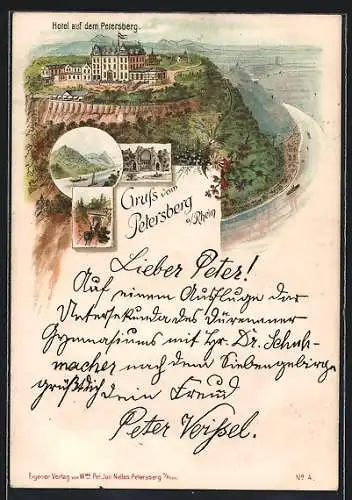 Hotel auf dem Petersberg.
Gruß vom
Petersberg
a/Rhein
Lieber Peter!
Auf einem Ausfluge der
Untersekunda des Dürenner
Gymnasiums mit Hr. Dr. Schuh-
macher nach dem Siebengebirge
grüßt dich dein Freund
Peter
Eigener Verlag von Wwe Pet. Jos. Nelles, Petersberg a/Rhein.
No 4.